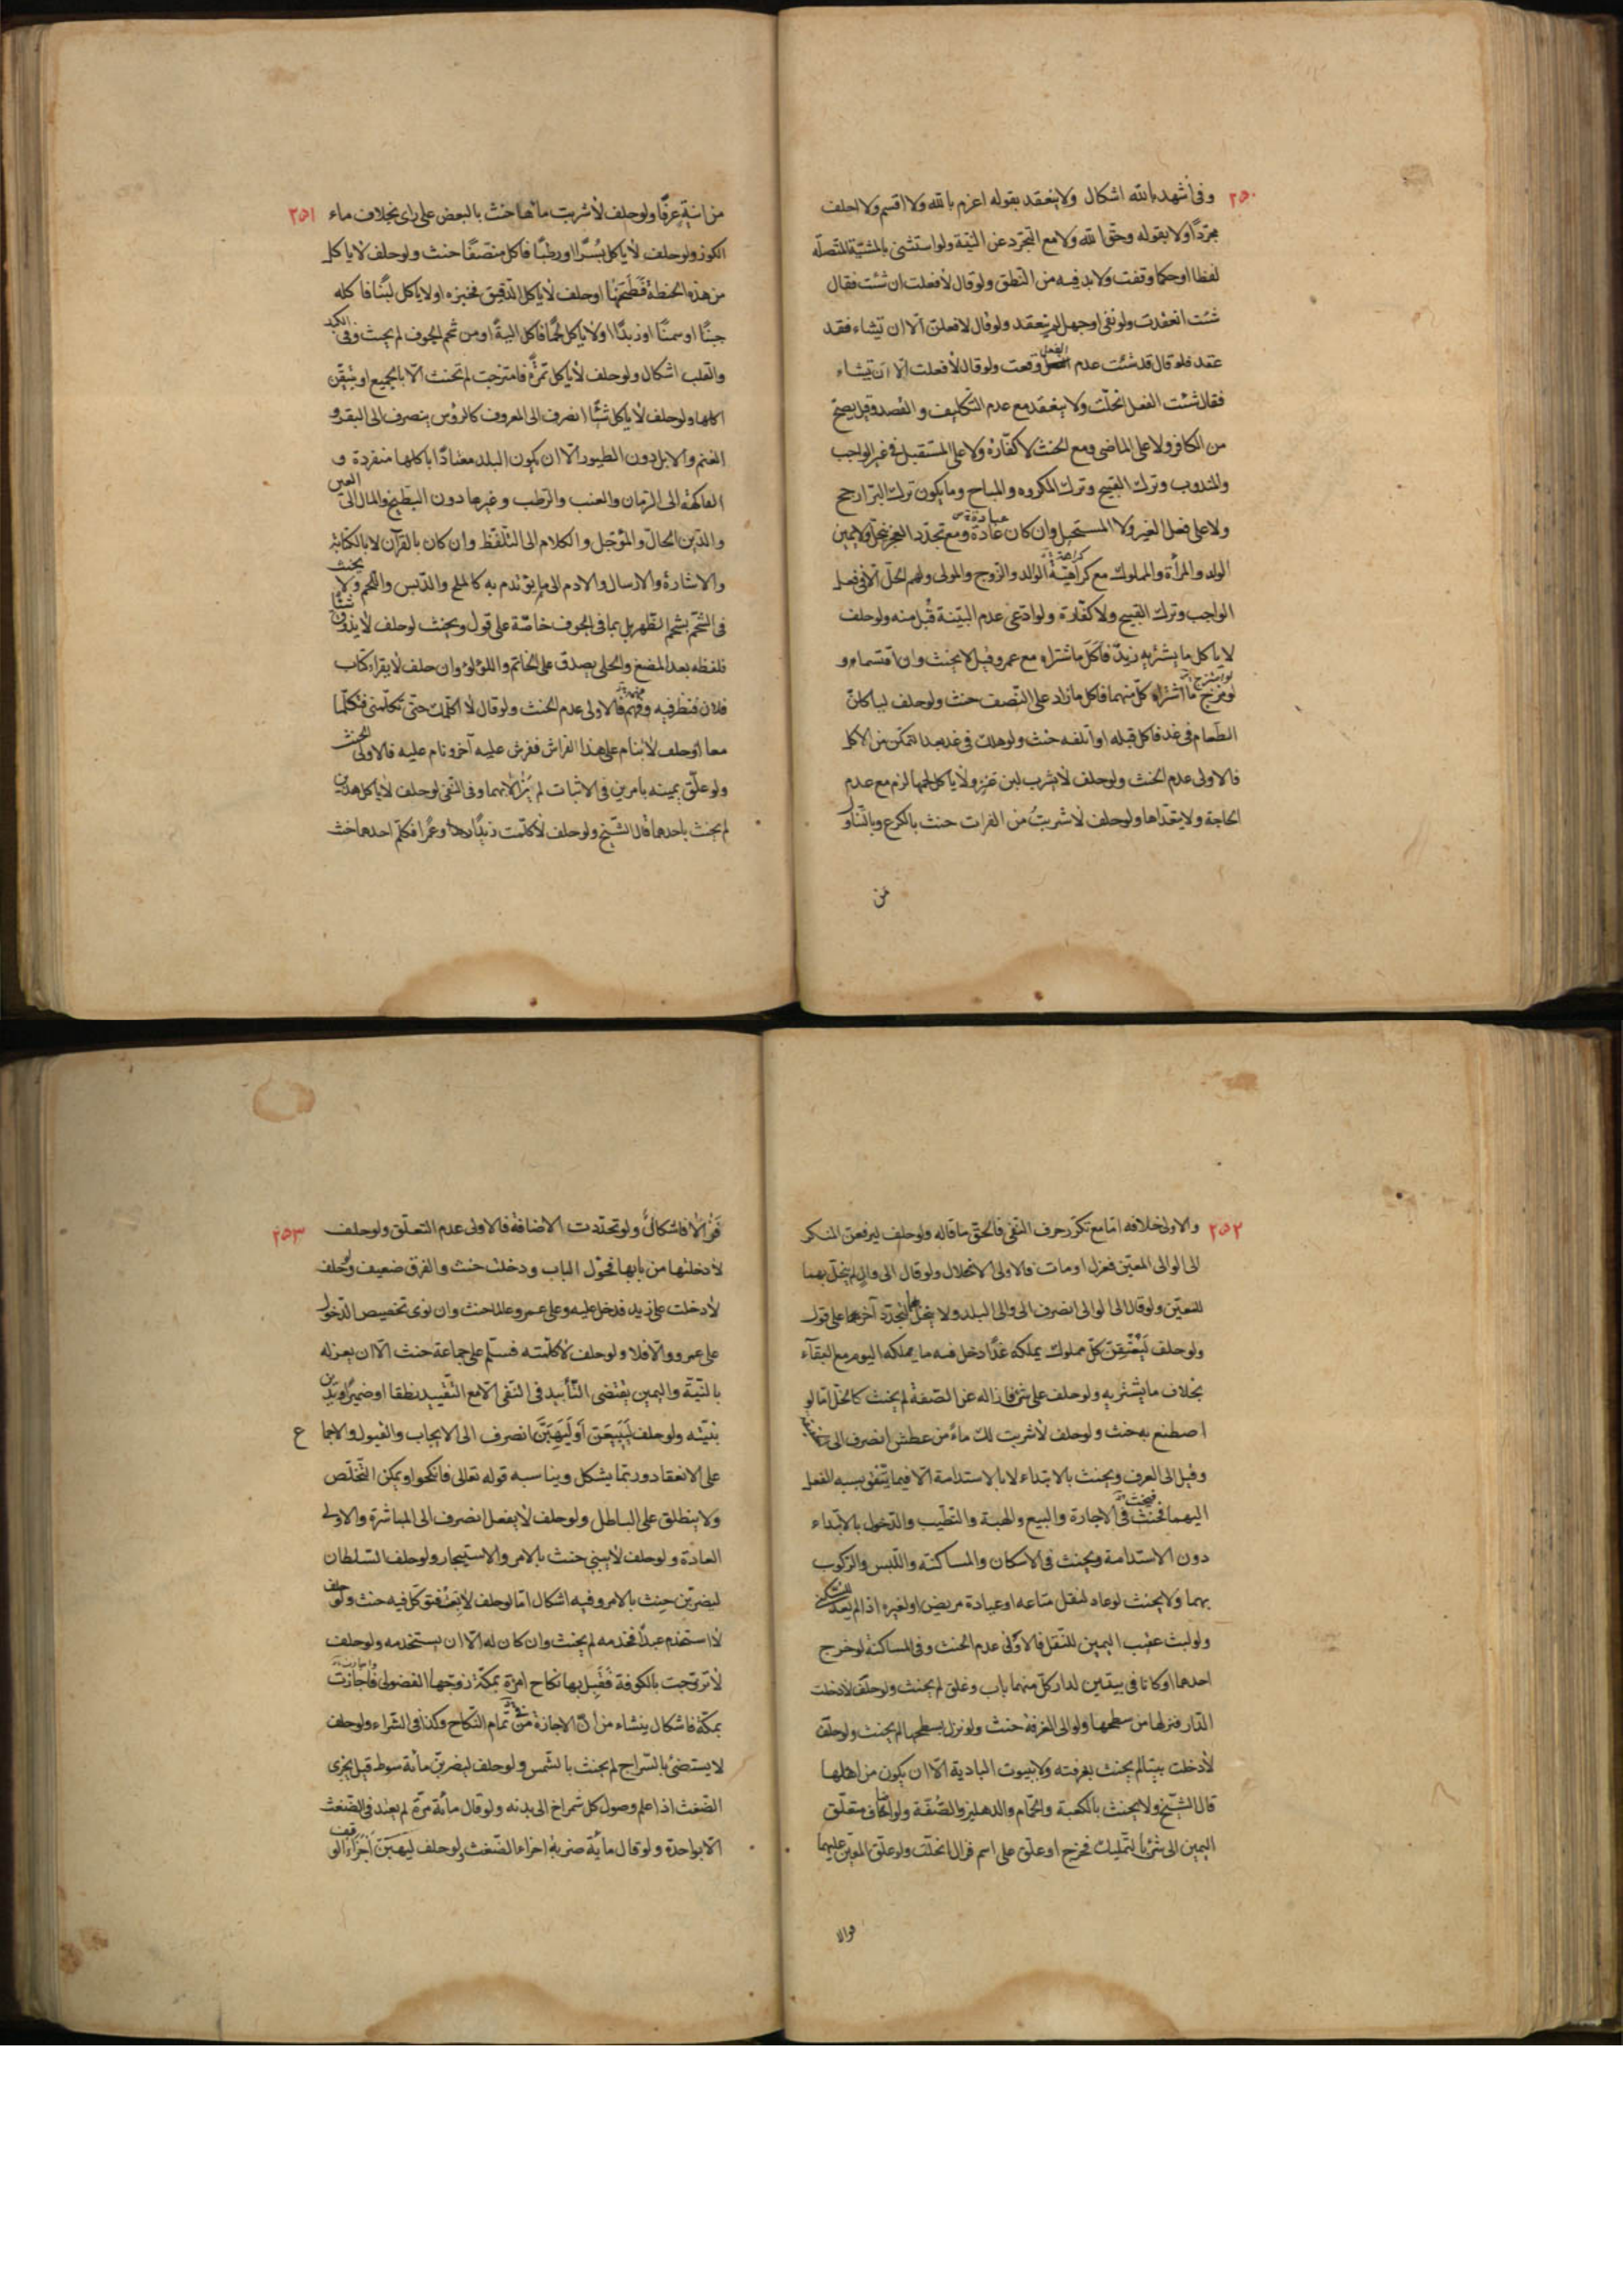 ٢٥٠
وفى أشهد بالله اشكال ولا ينعقد بقوله اعزم بالله ولا اقسم ولا احلف
مجرّدًا ولا بقوله وحقّ الله ولا مع التجرّد عن النيّة ولو استثنى بالمشيّة المتّصله
لفظا او حكما وقفت ولا بد فيه من النطق ولو قال لأفعلت ان شئت فقال
شئت انعقدت ولو نفى او جهل لم ينعقد ولو قال لافعلن الّا ان تيشاء فقد
عقد فلو قال قد شئت عدم الفعل وقعت ولو قال لأفعلت الا ان تيشاء
فقال شئت الفعل انحلّت ولا ينعقد مع عدم التكليف و القصد وقيل يصحّ
من الكافر ولا على الماضى ومع الحنث لا كفّارة ولا على المستقبل فى غير الواجب
والمندوب وترك القبيح وترك المكروه والمباح وما يكون ترك البرّ ارجح
ولا على فعل الغير ولا المستحيل وان كان عادة ومع تجدّد العجز ينحلّ ولا يمين
الولد والمرأة والمملوك مع كراهيّة الوالد والزّوج والمولى ولهم الحلّ الّا فى فعل
الواجب وترك القبيح ولا كفّارة ولو ادّعى عدم النيّة قُبل منه ولو حلف
لا يأكل ما يشتريه زيد فأكل ما شتراه مع عمرو قيل لا يحنث وان اقتسماه و
لو مزج ما اشتراه كلّ منهما فاكل ما زاد على النّصف حنث ولو حلف لياكلنّ
الطّعام فى غد فاكل قبله او اتلفه حنث ولو هلك فى غد بعد التمكن من الاكل
فالاولى عدم الحنث ولو حلف لأيشرب لبن عنز ولا ياكل لحمها لزم مع عدم
الحاجة ولا يتعدّاها ولو حلف لاشربتُ من الفرات حنث بالكرع وبالتناو
من
٢٥١
من انية عرفًا ولو حلف لأشربت ماءها حنث بالبعض على راى بخلاف ماء
الكوز ولو حلف لأياكل بُسرًا او رطبًا فاكل منصّفًا حنث ولو حلف لأياكل
من هذه الحنطة فطحنها او حلف لأياكل الدقيق فخبزه او لاياكل لبنًا فاكله
جبنًا او سمنًا او زبدًا او لاياكل لحمًا فاكل الية او من شحم الجوف لم يحنث وفى الكبد
والقلب اشكال ولو حلف لأياكل تمرة فامتزجت لم تحنث الّا بالجميع او بتيقّن
اكلها ولو حلف لأياكل شيئًا انصرف الى المعروف كالرؤس ينصرف الى البقر و
الغنم والابل دون الطيور الّا ان يكون البلد معتادًا باكلها منفردة و
الفاكهة الى الرمان والعنب والرطب وغيرها دون البطيخ والمال الى العين
والدّين الحالّ والمؤجّل والكلام الى التلفّظ وان كان بالقرآن لا بالكتابة
والاشارة والارسال والادم الى ما يؤتدم به كالملح والدّبس واللحم ولا يحنث
فى الشّحم بشحم الظّهر بل بما فى الجوف خاصّة على قول ويحنث لو حلف لا يذوق شيئا
فلفظه بعد المضغ والحلى يصدق على الخاتم واللؤلؤ وان حلف لا يقراء كتاب
فلان فنظر فيه وفهمه فالاولى عدم الحنث ولو قال لأ اكلّمك حتى تكلّمنى فتكلّما
معا او حلف لأينام على هذا الفراش ففرش عليه آخر ونام عليه فالاولى الحنث
ولو علّق يمينه بأمرين فى الاثبات لم يبرّ الا بهما وفى النفى لو حلف لأياكل هذين
لم يحنث باحدهما قال الشّيخ ولو حلف لأكلّمت زيدًا وعمرًا فكلّم احدهما حنث
٢٥٢
والاولى خلافه امّا مع تكرّر حرف النفى فالحقّ ما قاله ولو حلف ليرفعن المنكر
الى الوالى المعيّن فعزل او مات فالاولى الانحلال ولو قال الى والٍ لم ينحلّ بهما
للتعيّن ولو قال الى الوالى انصرف الى والى البلد ولا ينحلّ بهما لتجدّد آخر على قول
ولو حلف لَيُعْتِقنّ كلّ مملوك يملكه غدًا دخل فيه ما يملكه اليوم مع البقآء
بخلاف ما يشتريه ولو حلف على شئ فازاله عن الصّفة لم يحنث كالخلّ امّا لو
اصطنع به حنث ولو حلف لأشربت لك ماءً من عطش انصرف الى
وقيل الى العرف ويحنث بالابتداء لا بالاستدامة الّا فيما يتفق نسبه الفعل
اليهما فيحنث فى الاجارة والبيع والهبة والتطيّب والدّخول بالابتداء
دون الاستدامة ويحنث فى الاسكان والمساكنه واللبس والرّكوب
بهما ولا يحنث لو عاد لنقل متاعه او عيادة مريض او لغيره اذا لم يعد للسكنى
ولو لبث عقيب اليمين للنّقل فالأولى عدم الحنث وفى المساكنة لو خرج
احدهما او كانا فى بيتين لدار كلّ منهما باب وغلق لم يحنث ولو حلف لأدخلت
الدّار فنزلها من سطحها ولو الى الغرفة حنث ولو نزل بسطحها لم يحنث ولو حلف
لأدخلت بيتا لم يحنث بغرفته ولا ببيوت البادية الّا ان يكون من اهلها
قال الشّيخ ولا يحنث بالكعبة والحمّام والدهليز والصّفة ولو اضاف متعلّق
اليمين الى شئ بالتمليك فخرج او علّق على اسم فزال انحلّت ولو علّق اليمين عليهما
فزالا
٢٥٣
فزالا فاشكالٌ ولو تجدّدت الاضافة فالاولى عدم التعلّق ولو حلف
لأدخلنّها من بابها فحوّل الباب ودخلت حنث والفرق ضعيف ولو حلف
لأدخلت على زيد فدخل عليه وعلى عمرو عالما حنث وان نوى تخصيص الدّخول
على عمرو والّا فلا ولو حلف لأكلّمته فسلّم على جماعة حنث الّا ان يعزله
بالنيّة واليمين يقتضى التّأبيد فى النفى الّا مع التّقييد نطقا او ضميرًا ويدين
بنيّته ولو حلف لَيَبِيعَن أو لَيَهِبَنّ انصرف الى الايجاب والقبول والاجماع
على الانعقاد وربّما يشكل ويناسبه قوله تعالى فانكحوا ويمكن التّخلّص
ولا ينطلق على الباطل ولو حلف لأيفعل انصرف الى المباشرة والاولى
العادة ولو حلف لأيبنى حنث بالامر والاستيجار ولو حلف السّلطان
ليضربّن حنث بالامر وفيه اشكال امّا لو حلف لا يعتق فوكّل فيه حنث ولو حلف
لا استخدم عبدًا فخدمه لم يحنث وان كان له الّا ان يستخدمه ولو حلف
لأتزوّجت بالكوفة فقبل بها نكاح امرأة بمكّة زوّجها الفضولى فاجازت
بمكّة فاشكال ينشاء من انّ الاجازة من تمام النّكاح وكذا فى الشّراء ولو حلف
لا يستضئ بالسّراج لم يحنث بالشّمس ولو حلف ليضربنّ مأئة سوط قيل يجزى
الضّغث اذا علم وصول كلّ شمراخ الى بدنه ولو قال مأئة مرّة لم يعتد فى الضّغث
الّا بواحدة ولو قال مأية ضربة اجزاء الضّغث ولو حلف ليهبَنّ أجزاء الوقف